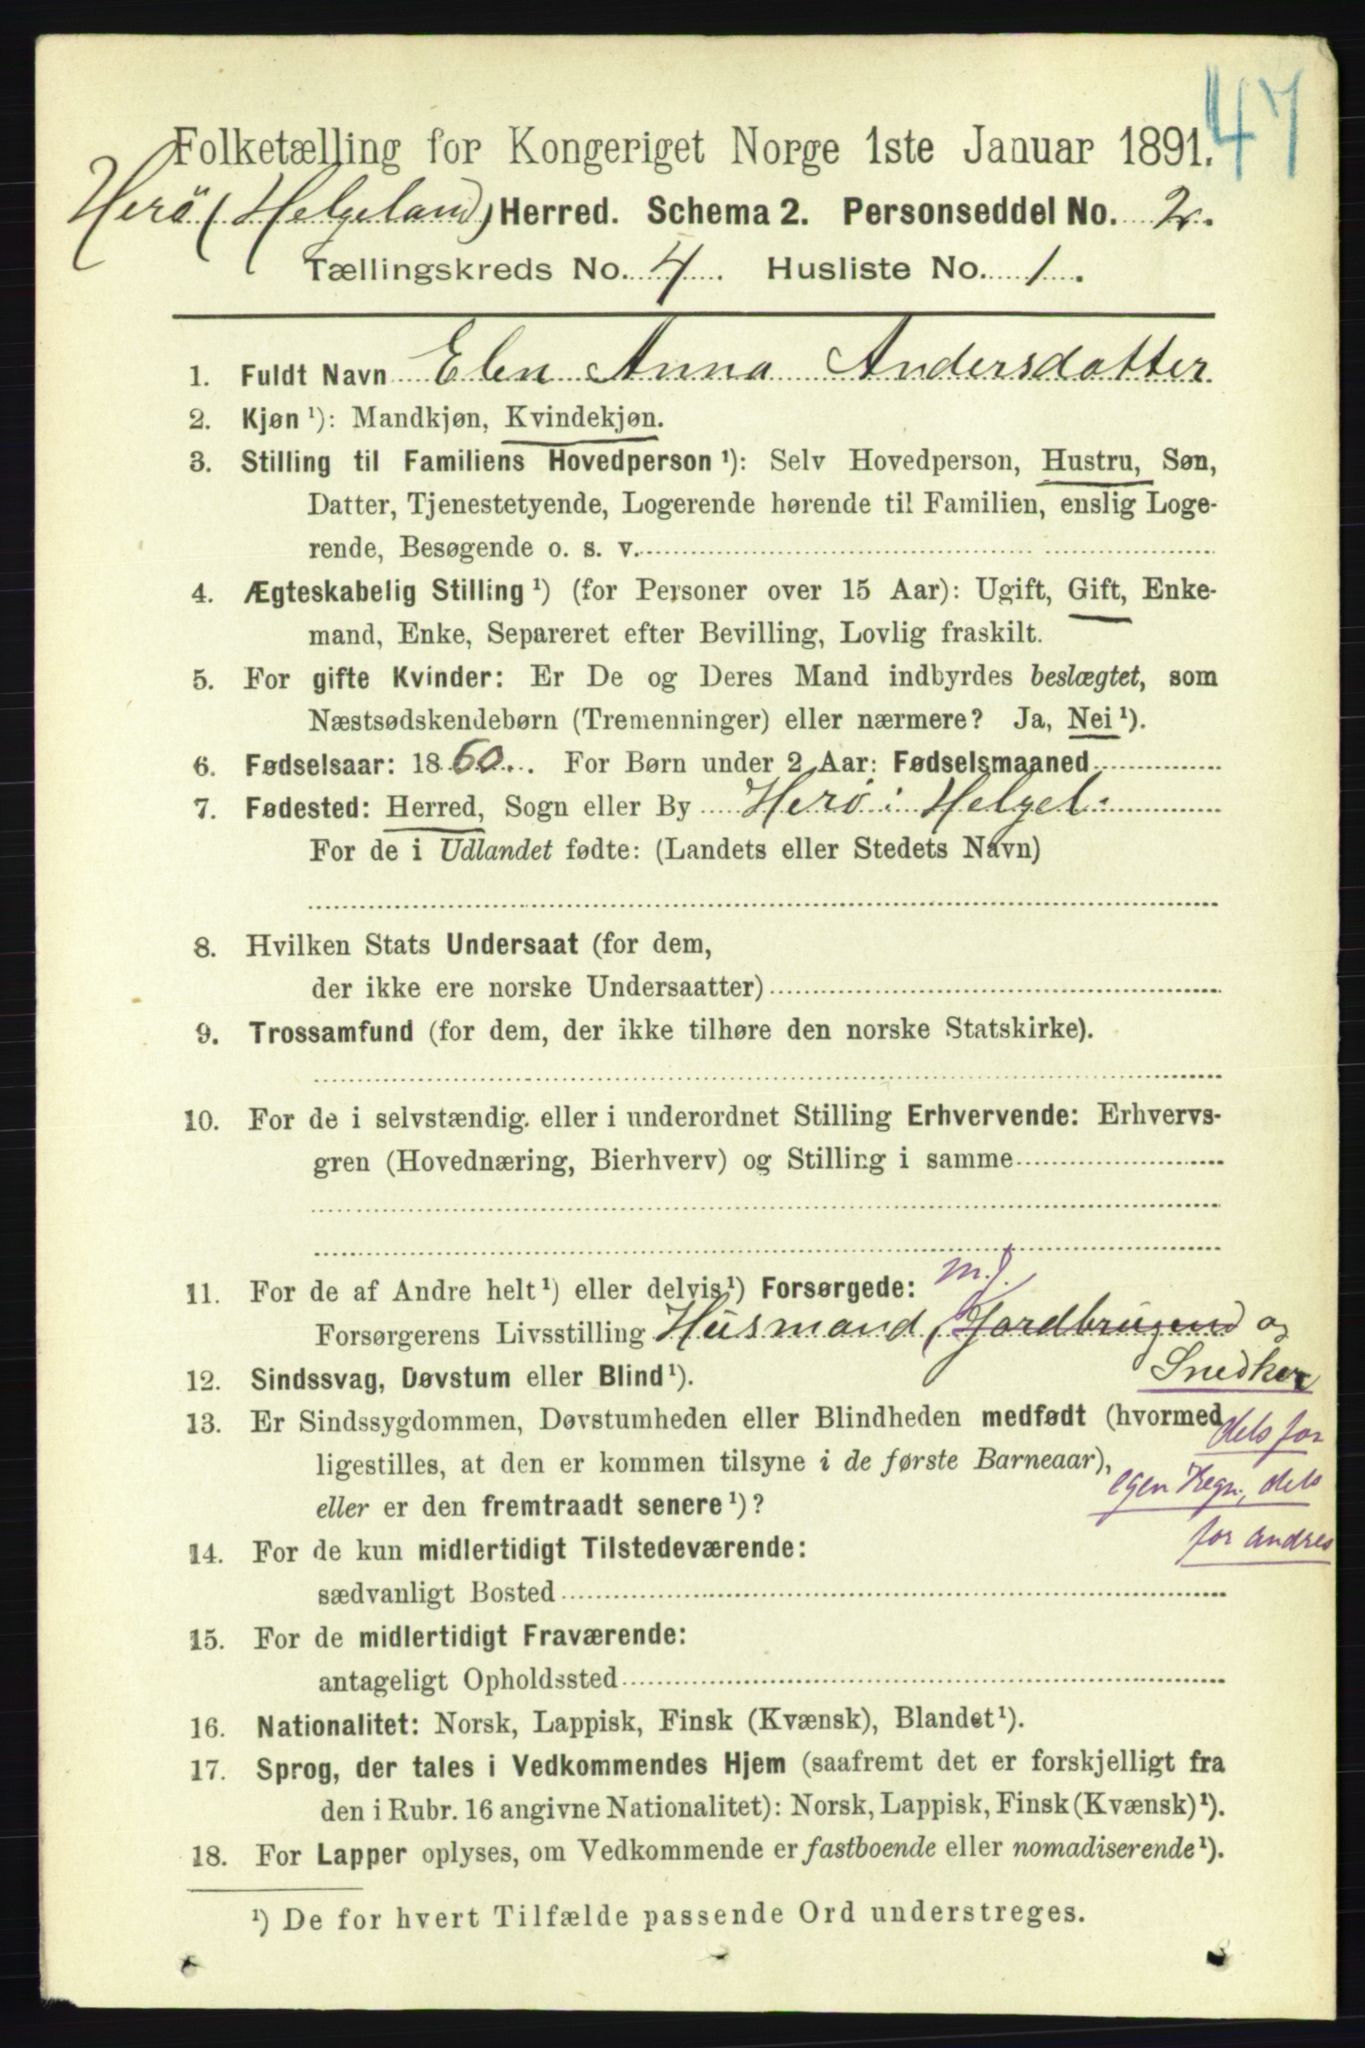 47
Folketælling for Kongeriget Norge 1ste Januar 1891.
Herö (Helgeland) Herred. Schema 2. Personseddel No. 2.
Tællingskreds No. 4. Husliste No. 1.
1. Fuldt Navn Elen Anna Andersdatter
2. Kjøn ¹): Mandkjøn, Kvindekjøn.
3. Stilling til Familiens Hovedperson ¹): Selv Hovedperson, Hustru, Søn,
Datter, Tjenestetyende, Logerende hørende til Familien, enslig Loge-
rende, Besøgende o. s. v.
4. Ægteskabelig Stilling ¹) (for Personer over 15 Aar): Ugift, Gift, Enke-
mand, Enke, Separeret efter Bevilling, Lovlig fraskilt.
5. For gifte Kvinder: Er De og Deres Mand indbyrdes beslægtet, som
Næstsødskendebørn (Tremenninger) eller nærmere? Ja, Nei ¹).
6. Fødselsaar: 1860. For Børn under 2 Aar: Fødselsmaaned
7. Fødested: Herred, Sogn eller By Herö i Helgel.
For de i Udlandet fødte: (Landets eller Stedets Navn)
8. Hvilken Stats Undersaat (for dem,
der ikke ere norske Undersaatter)
9. Trossamfund (for dem, der ikke tilhøre den norske Statskirke).
10. For de i selvstændig. eller i underordnet Stilling Erhvervende: Erhvervs-
gren (Hovednæring, Bierhverv) og Stilling i samme
11. For de af Andre helt ¹) eller delvis ¹) Forsørgede: m.J.
Forsørgerens Livsstilling Husmand, Jordbrugend og
Snedker
12. Sindssvag, Døvstum eller Blind ¹).
13. Er Sindssygdommen, Døvstumheden eller Blindheden medfødt (hvormed
dels for
ligestilles, at den er kommen tilsyne i de første Barneaar),
egen Regn., dels
eller er den fremtraadt senere ¹)?
for andres
14. For de kun midlertidigt Tilstedeværende:
sædvanligt Bosted
15. For de midlertidigt Fraværende:
antageligt Opholdssted
16. Nationalitet: Norsk, Lappisk, Finsk (Kvænsk), Blandet ¹).
17. Sprog, der tales i Vedkommendes Hjem (saafremt det er forskjelligt fra
den i Rubr. 16 angivne Nationalitet): Norsk, Lappisk, Finsk (Kvænsk) ¹).
18. For Lapper oplyses, om Vedkommende er fastboende eller nomadiserende ¹).
¹) De for hvert Tilfælde passende Ord understreges.